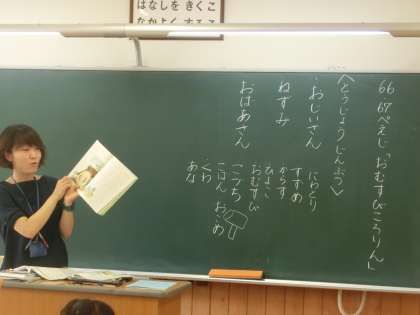 はなしを きくこ
なかよく するこ
66 67ぺえじ「おむすびころりん」
〈とうじょうじんぶつ〉
・おじいさん
ねずみ
おばあさん
にわとり
すずめ
からす
ひよこ
おむすび
こづち
ごはん おこめ
くわ
あな